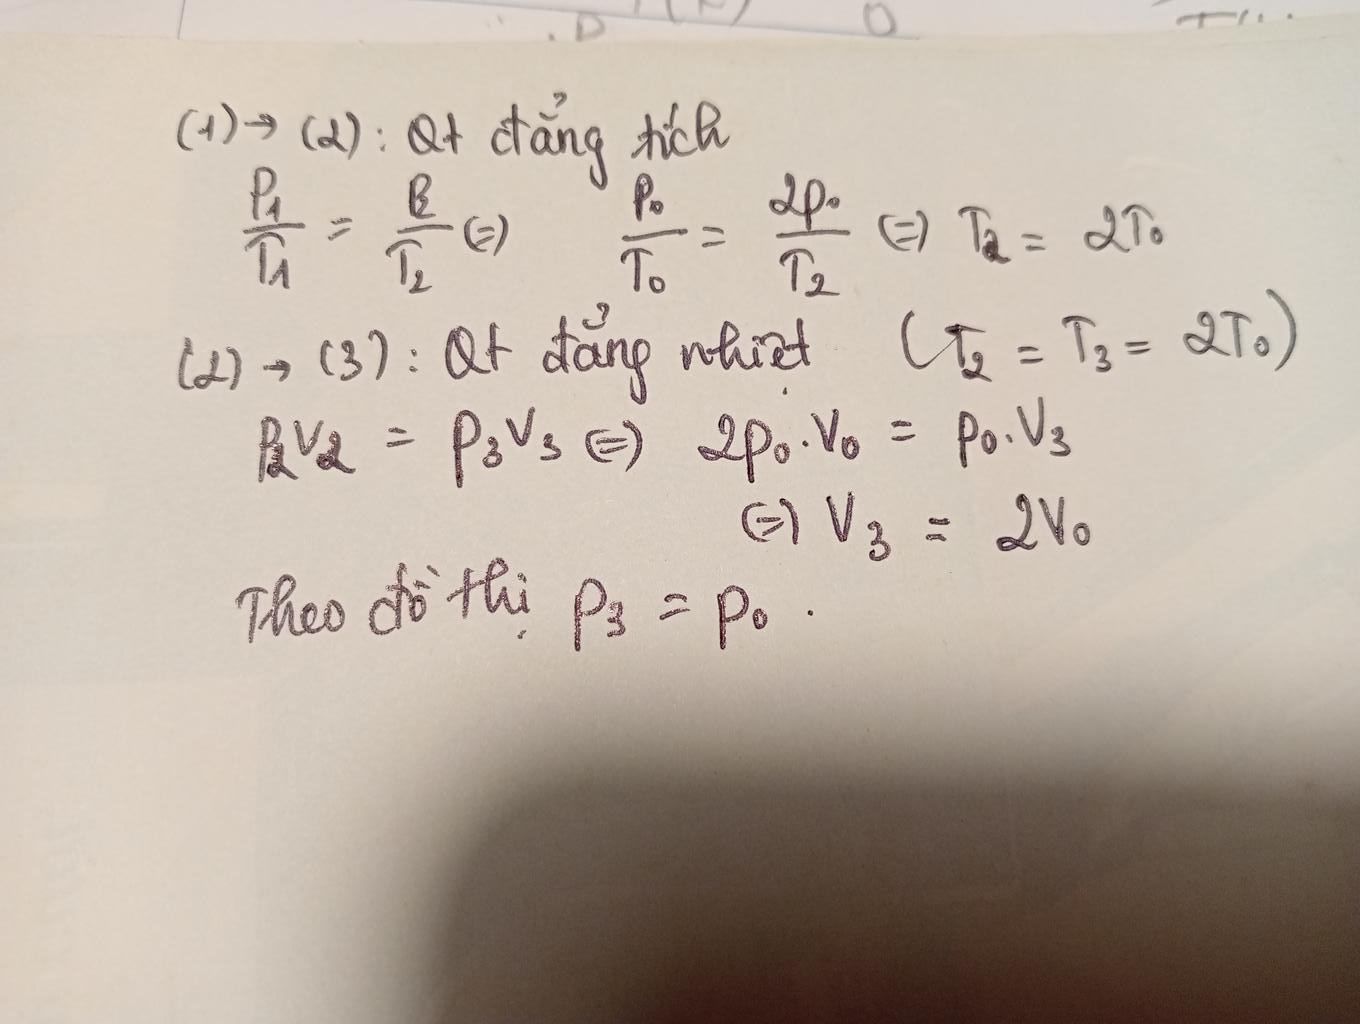 (1) → (2): Qt đẳng tích
P₁/T₁ = P₂/T₂ (=) P₀/T₀ = 2p₀/T₂ (=) T₂ = 2T₀
(2) → (3): Qt đẳng nhiệt (T₂ = T₃ = 2T₀)
P₂V₂ = P₃V₃ (=) 2p₀.V₀ = p₀.V₃
(=) V₃ = 2V₀
Theo đồ thị P₃ = p₀.